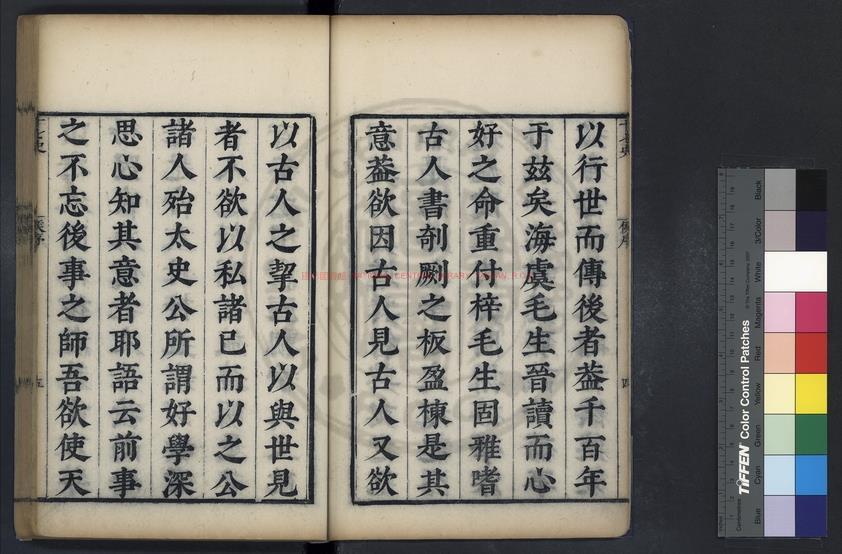 以行世而傳後者葢千百年
于玆矣海虞毛生晉讀而心
好之命重付梓毛生固雅嗜
古人書剞劂之板盈棟是其
意葢欲因古人見古人又欲
以古人之挈古人以與世見
者不欲以私諸已而以之公
諸人殆太史公所謂好學深
思心知其意者耶語云前事
之不忘後事之師吾欲使天
四
五
TIFFEN Color Control Patches
Blue
Cyan
Green
Yellow
Red
Magenta
White
3/Color
Black